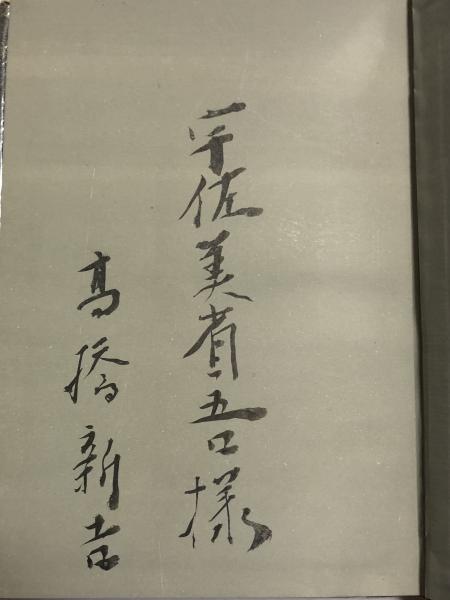 宇佐美省吾様
高橋新吉